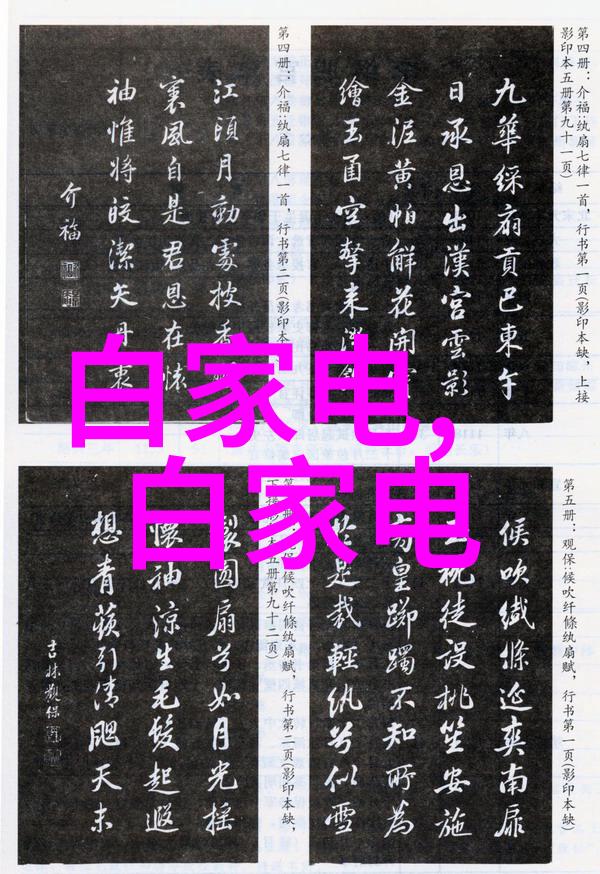 第四册：介福：纨扇七律一首，行书第一页（影印本缺，上接
影印本五册第九十一页）
九華綵扇貢巴東午
日承恩出漢宮雲影
金泥黄帕鮮花開
繪玉函空擎来
第四册：介福：纨扇七律一首，行书第二页（影印本
江頭月動處披香
裏風自是君恩在懐
袖惟将皎潔矢丹衷
介福
白家电，
白家电
第五册：观保：候吹纤絛纨扇赋，行书第一页（影印本缺）
候吹纎絛延爽南扉
祝徒设桃笙安施
皇躑躅不知所為
是裁輕紈兮似雪
候吹纤絛纨扇赋，行书第二页（影印本缺，
本五册第九十二页）
製圆扇兮如月光摇
懷袖涼生毛髮起遐
想青蘋引清颸天末
吉林觀保